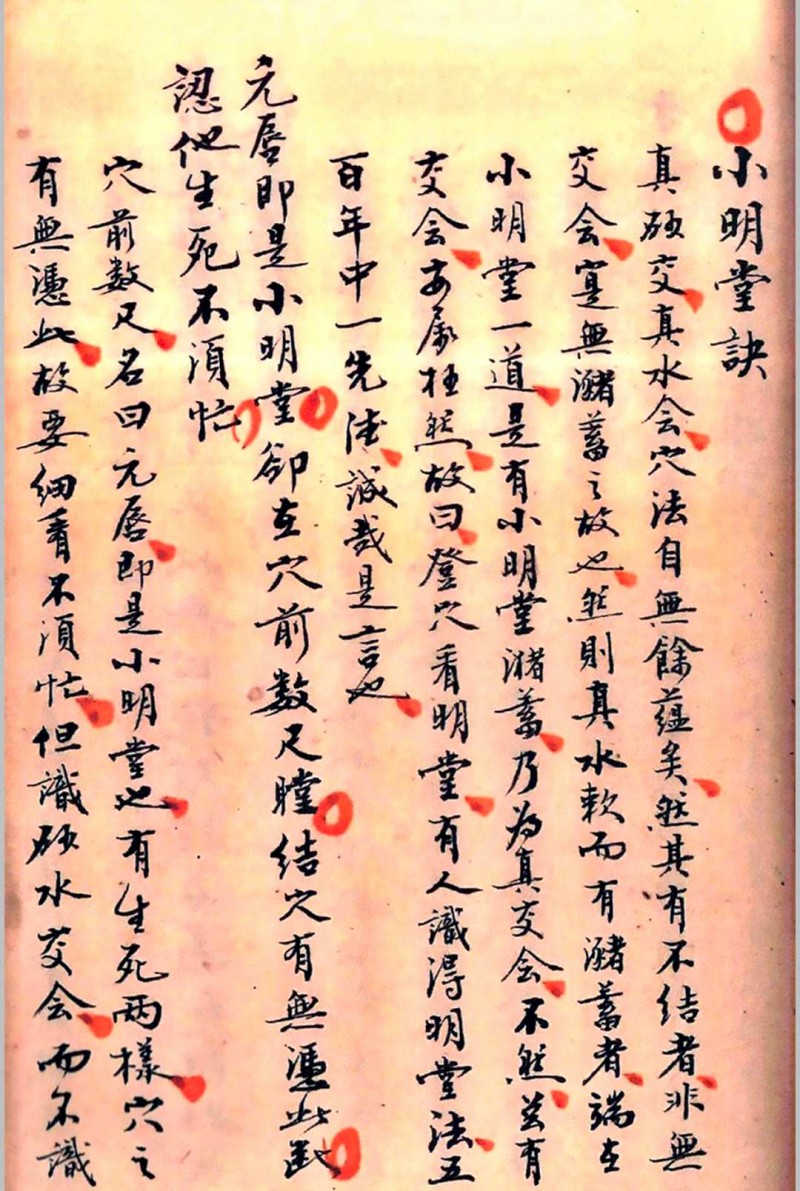 小明堂訣
真砂交真水会穴法自無餘蘊矣然其有不結者非無
交会寔無瀦蓄之故也然則真水軟而有瀦蓄者端在
小明堂一道是有小明堂瀦蓄乃為真交会不然有
交会亦屬枉然故曰登穴看明堂有人識得明堂法五
百年中一先誠哉是言也
元唇即是小明堂卻在穴前数尺瞠結穴有無憑此断
認他生死不須忙
穴前数尺名曰元唇即是小明堂也有生死两樣穴之
有無憑此故要細看不須忙但識砂水交会而不識